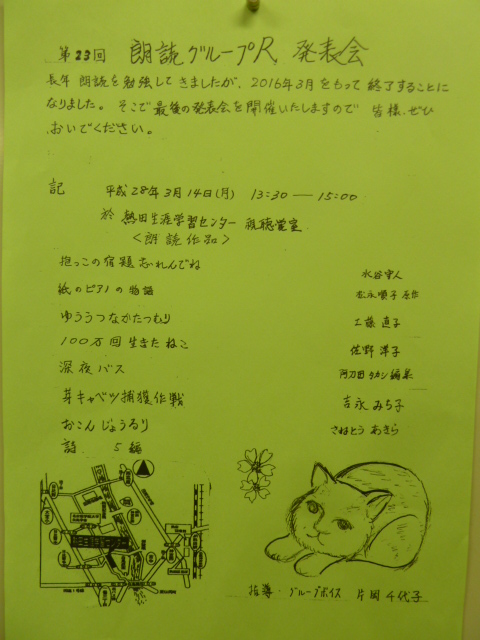 第23回 朗読グループR 発表会
長年 朗読を勉強してきましたが、2016年3月をもって終了することに
なりました。そこで最後の発表会を開催いたしますので 皆様、ぜひ
おいでください。
記 平成28年3月14日(月) 13:30 — 15:00
於 熱田生涯学習センター 視聴覚室
<朗読作品>
抱っこの宿題忘れんでね 水谷守人
紙のピアノの物語 松永順子 原作
ゆううつなかたつむり 工藤直子
100万回生きたねこ 佐野洋子
深夜バス 阿刀田タカシ編集
芽キャベツ捕獲作戦 吉永みち子
おこんじょうるり さねとうあきら
詩 5編
指導・グループボイス 片岡千代子